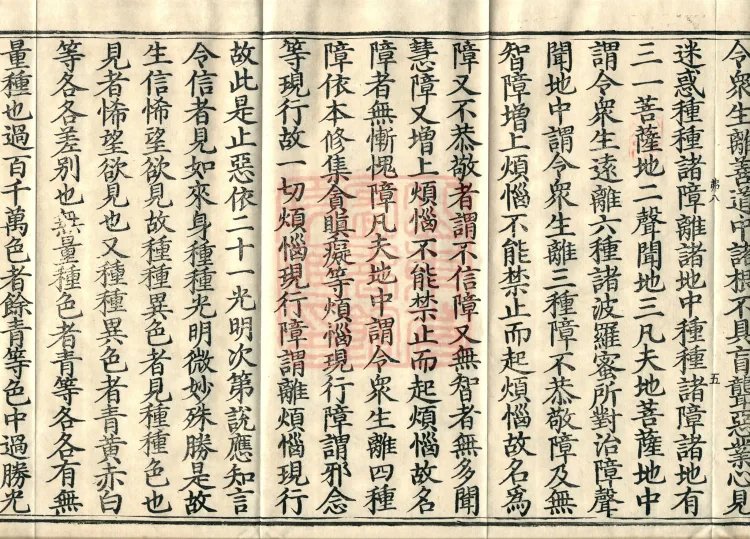 令衆生離善道中諸根不具盲聾惡業心見
迷惑種種諸障離諸地中種種諸障諸地有
三一菩薩地二聲聞地三凡夫地菩薩地中
謂令衆生遠離六種諸波羅蜜所對治障聲
聞地中謂令衆生離三種障不恭敬障及無
智障增上煩惱不能禁止而起煩惱故名爲
障又不恭敬者謂不信障又無智者無多聞
慧障又增上煩惱不能禁止而起煩惱故名
障者無慚愧障凡夫地中謂令衆生離四種
障依本修集貪瞋癡等煩惱現行障謂邪念
等現行故一切煩惱現行障謂離煩惱現行
故此是止惡依二十一光明次第說應知言
令信者見如來身種種光明微妙殊勝是故
生信悕望欲見故種種異色者見種種色也
見者悕望欲見也又種種異色者青黃赤白
等各各差別也無量種色者青等各各有無
量種也過百千萬色者餘青等色中過勝光
弟八
五